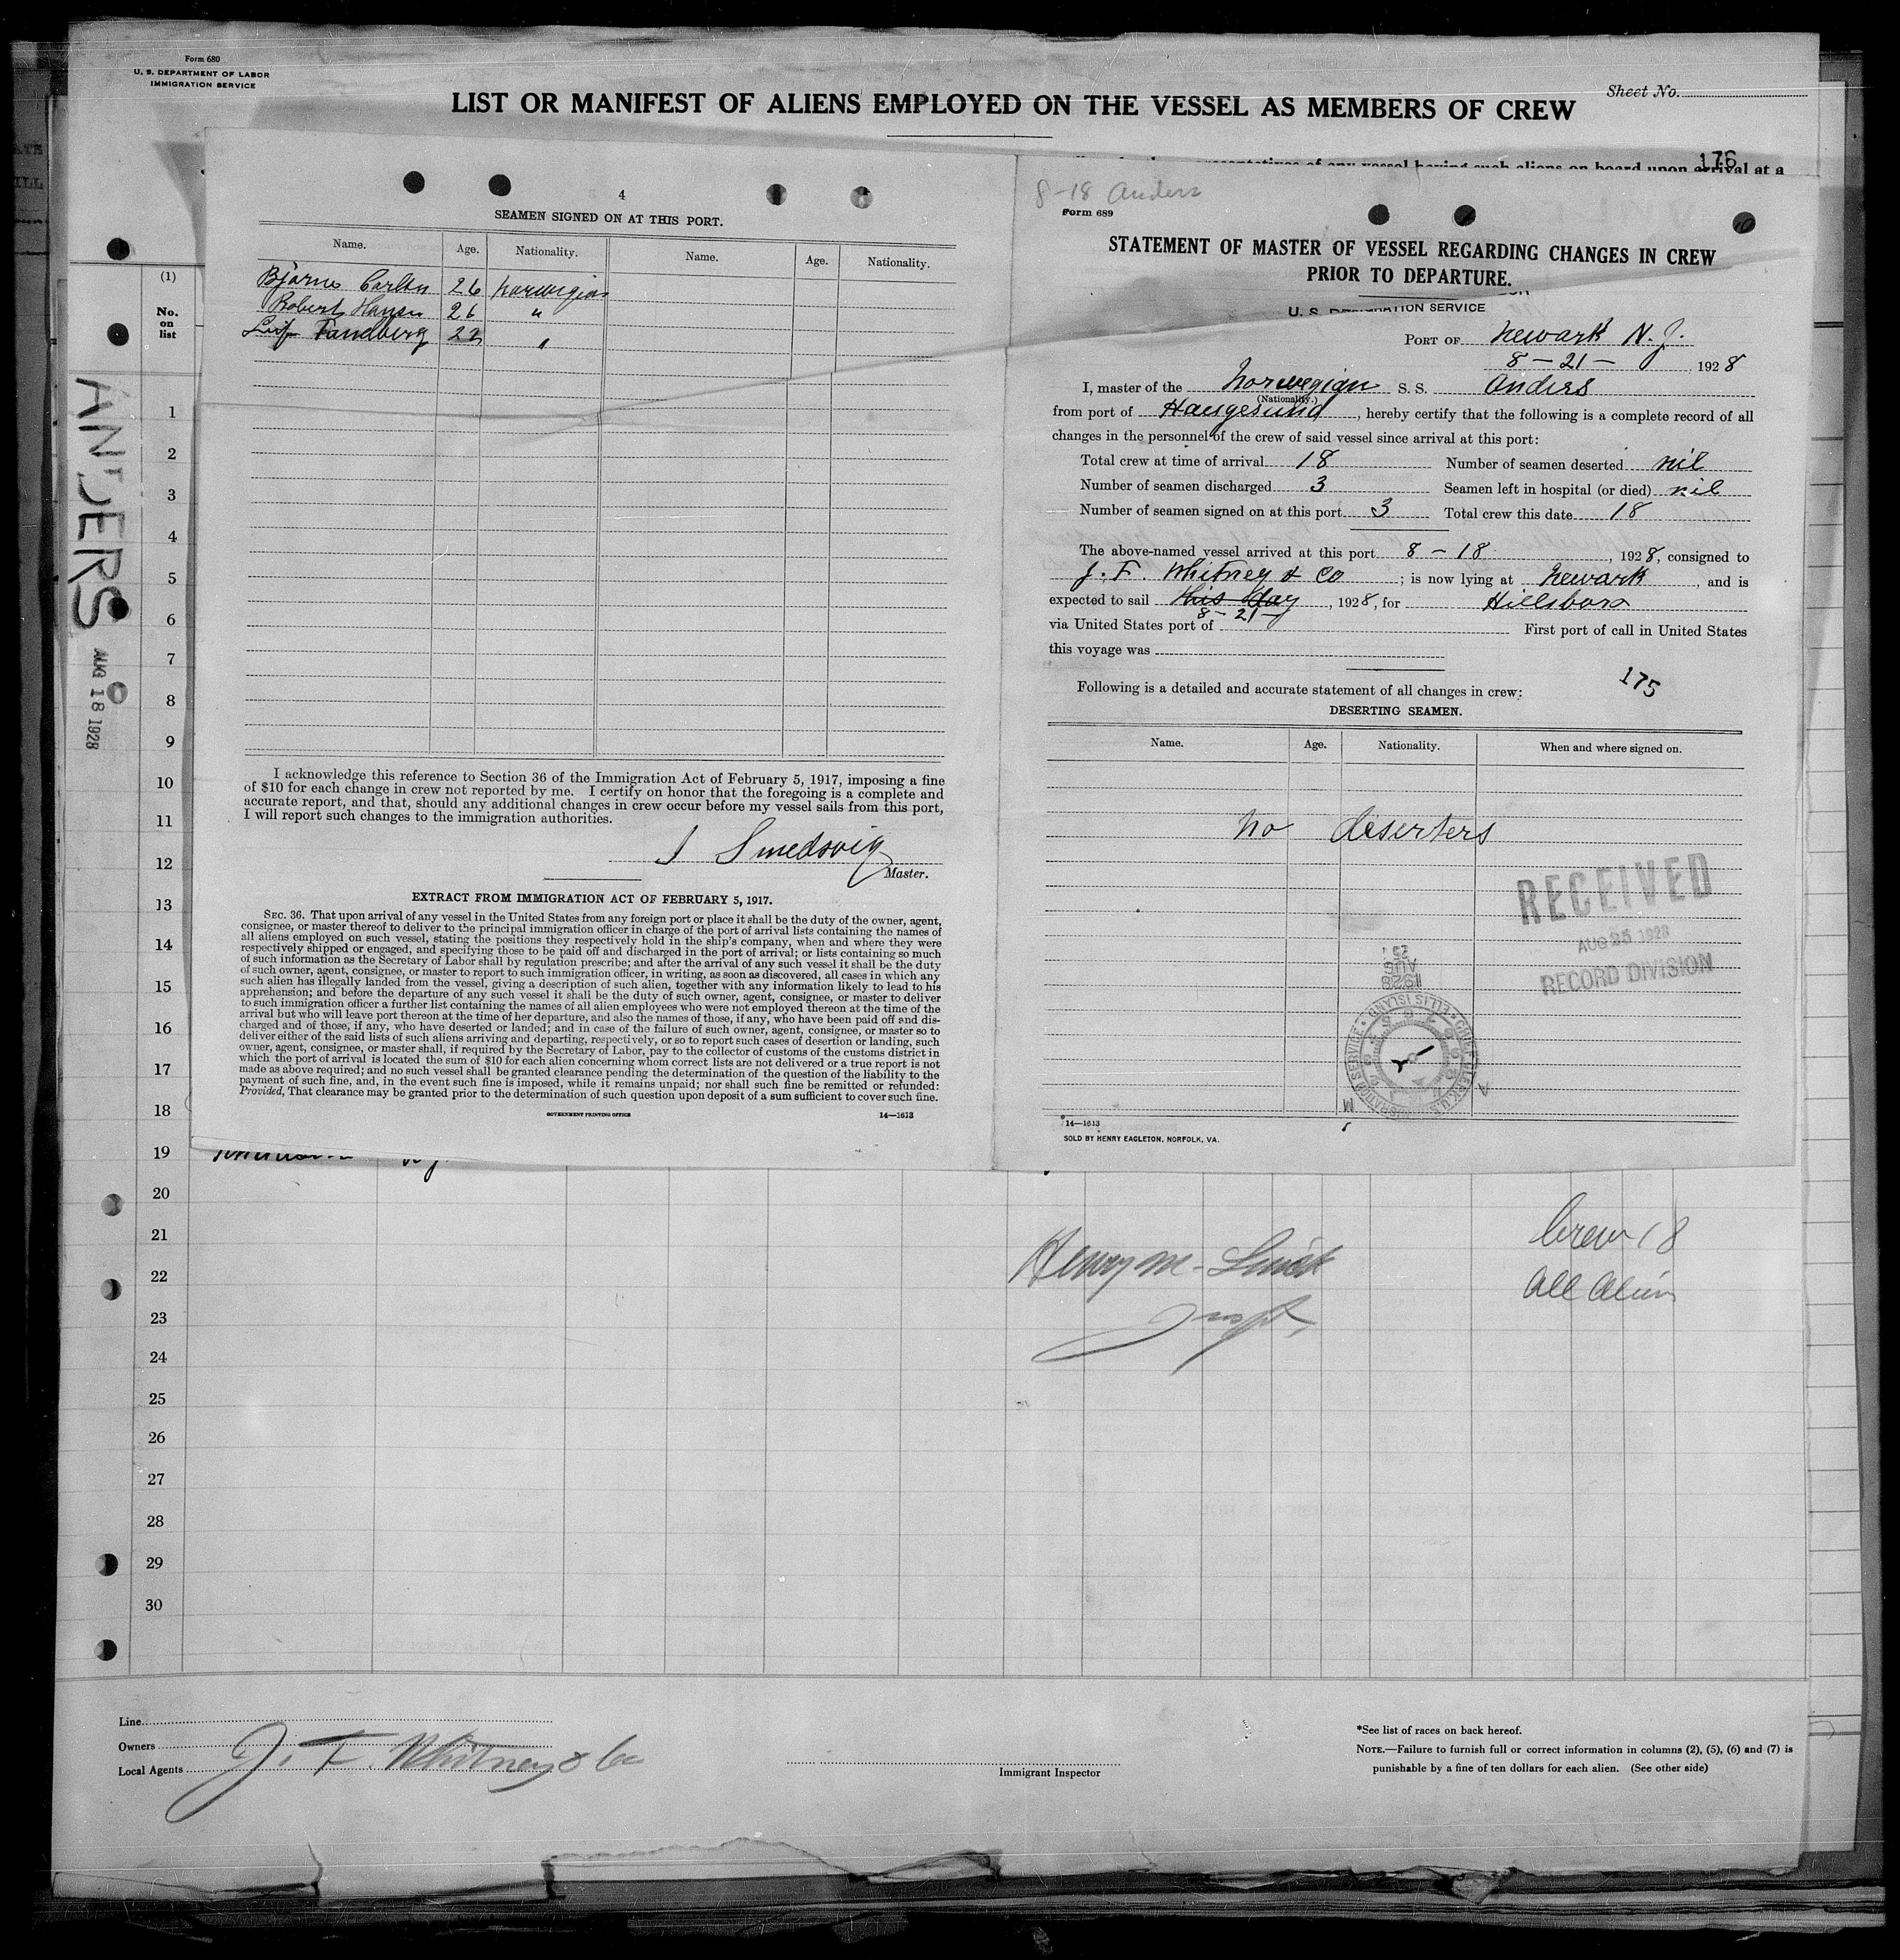 Form 680
U. S. DEPARTMENT OF LABOR
IMMIGRATION SERVICE
Sheet No.
LIST OR MANIFEST OF ALIENS EMPLOYED ON THE VESSEL AS MEMBERS OF CREW
176
of any vessel having such aliens on board upon arrival at a
(1)
No.
on
list
ANDERS
AUG 18 1928
4
SEAMEN SIGNED ON AT THIS PORT.
Name. Age. Nationality. Name. Age. Nationality.
Bjarne Carlsen 26 Norwegian
Robert Hansen 26 "
Leif 22 "
I acknowledge this reference to Section 36 of the Immigration Act of February 5, 1917, imposing a fine
of $10 for each change in crew not reported by me. I certify on honor that the foregoing is a complete and
accurate report, and that, should any additional changes in crew occur before my vessel sails from this port,
I will report such changes to the immigration authorities.
J Smedsvig
Master.
EXTRACT FROM IMMIGRATION ACT OF FEBRUARY 5, 1917.
SEC. 36. That upon arrival of any vessel in the United States from any foreign port or place it shall be the duty of the owner, agent,
consignee, or master thereof to deliver to the principal immigration officer in charge of the port of arrival lists containing the names of
all aliens employed on such vessel, stating the positions they respectively hold in the ship's company, when and where they were
respectively shipped or engaged, and specifying those to be paid off and discharged in the port of arrival; or lists containing so much
of such information as the Secretary of Labor shall by regulation prescribe; and after the arrival of any such vessel it shall be the duty
of such owner, agent, consignee, or master to report to such immigration officer, in writing, as soon as discovered, all cases in which any
such alien has illegally landed from the vessel, giving a description of such alien, together with any information likely to lead to his
apprehension; and before the departure of any such vessel it shall be the duty of such owner, agent, consignee, or master to deliver
to such immigration officer a further list containing the names of all alien employees who were not employed thereon at the time of the
arrival but who will leave port thereon at the time of her departure, and also the names of those, if any, who have been paid off and dis-
charged and of those, if any, who have deserted or landed; and in case of the failure of such owner, agent, consignee, or master so to
deliver either of the said lists of such aliens arriving and departing, respectively, or so to report such cases of desertion or landing, such
owner, agent, consignee, or master shall, if required by the Secretary of Labor, pay to the collector of customs of the customs district in
which the port of arrival is located the sum of $10 for each alien concerning whom correct lists are not delivered or a true report is not
made as above required; and no such vessel shall be granted clearance pending the determination of the question of the liability to the
payment of such fine, and, in the event such fine is imposed, while it remains unpaid; nor shall such fine be remitted or refunded:
Provided, That clearance may be granted prior to the determination of such question upon deposit of a sum sufficient to cover such fine.
GOVERNMENT PRINTING OFFICE 14—1613
8-18 Anders
Form 689
STATEMENT OF MASTER OF VESSEL REGARDING CHANGES IN CREW
PRIOR TO DEPARTURE.
IMMIGRATION SERVICE
PORT OF Newark N. J.
8 - 21 - , 1928
I, master of the Norwegian S. S. Anders
(Nationality.)
from port of Haugesund, hereby certify that the following is a complete record of all
changes in the personnel of the crew of said vessel since arrival at this port:
Total crew at time of arrival 18 Number of seamen deserted nil
Number of seamen discharged 3 Seamen left in hospital (or died) nil
Number of seamen signed on at this port 3 Total crew this date 18
The above-named vessel arrived at this port 8 - 18, 1928, consigned to
J. F. Whitney & Co; is now lying at Newark, and is
expected to sail this day, 1928, for Hillsboro
8 - 21 -
via United States port of First port of call in United States
this voyage was
175
Following is a detailed and accurate statement of all changes in crew:
DESERTING SEAMEN.
Name. Age. Nationality. When and where signed on.
No deserters
RECEIVED
AUG 25 1928
RECORD DIVISION
1928
AUG
25
14—1613
SOLD BY HENRY EAGLETON, NORFOLK, VA.
1
2
3
4
5
6
7
8
9
10
11
12
13
14
15
16
17
18
19
20
21
22
23
24
25
26
27
28
29
30
Henry M.
Insp.
Crew 18
All Alien
Line
Owners
Local Agents J. F. Whitney & Co
Immigrant Inspector
*See list of races on back hereof.
NOTE.—Failure to furnish full or correct information in columns (2), (5), (6) and (7) is
punishable by a fine of ten dollars for each alien. (See other side)